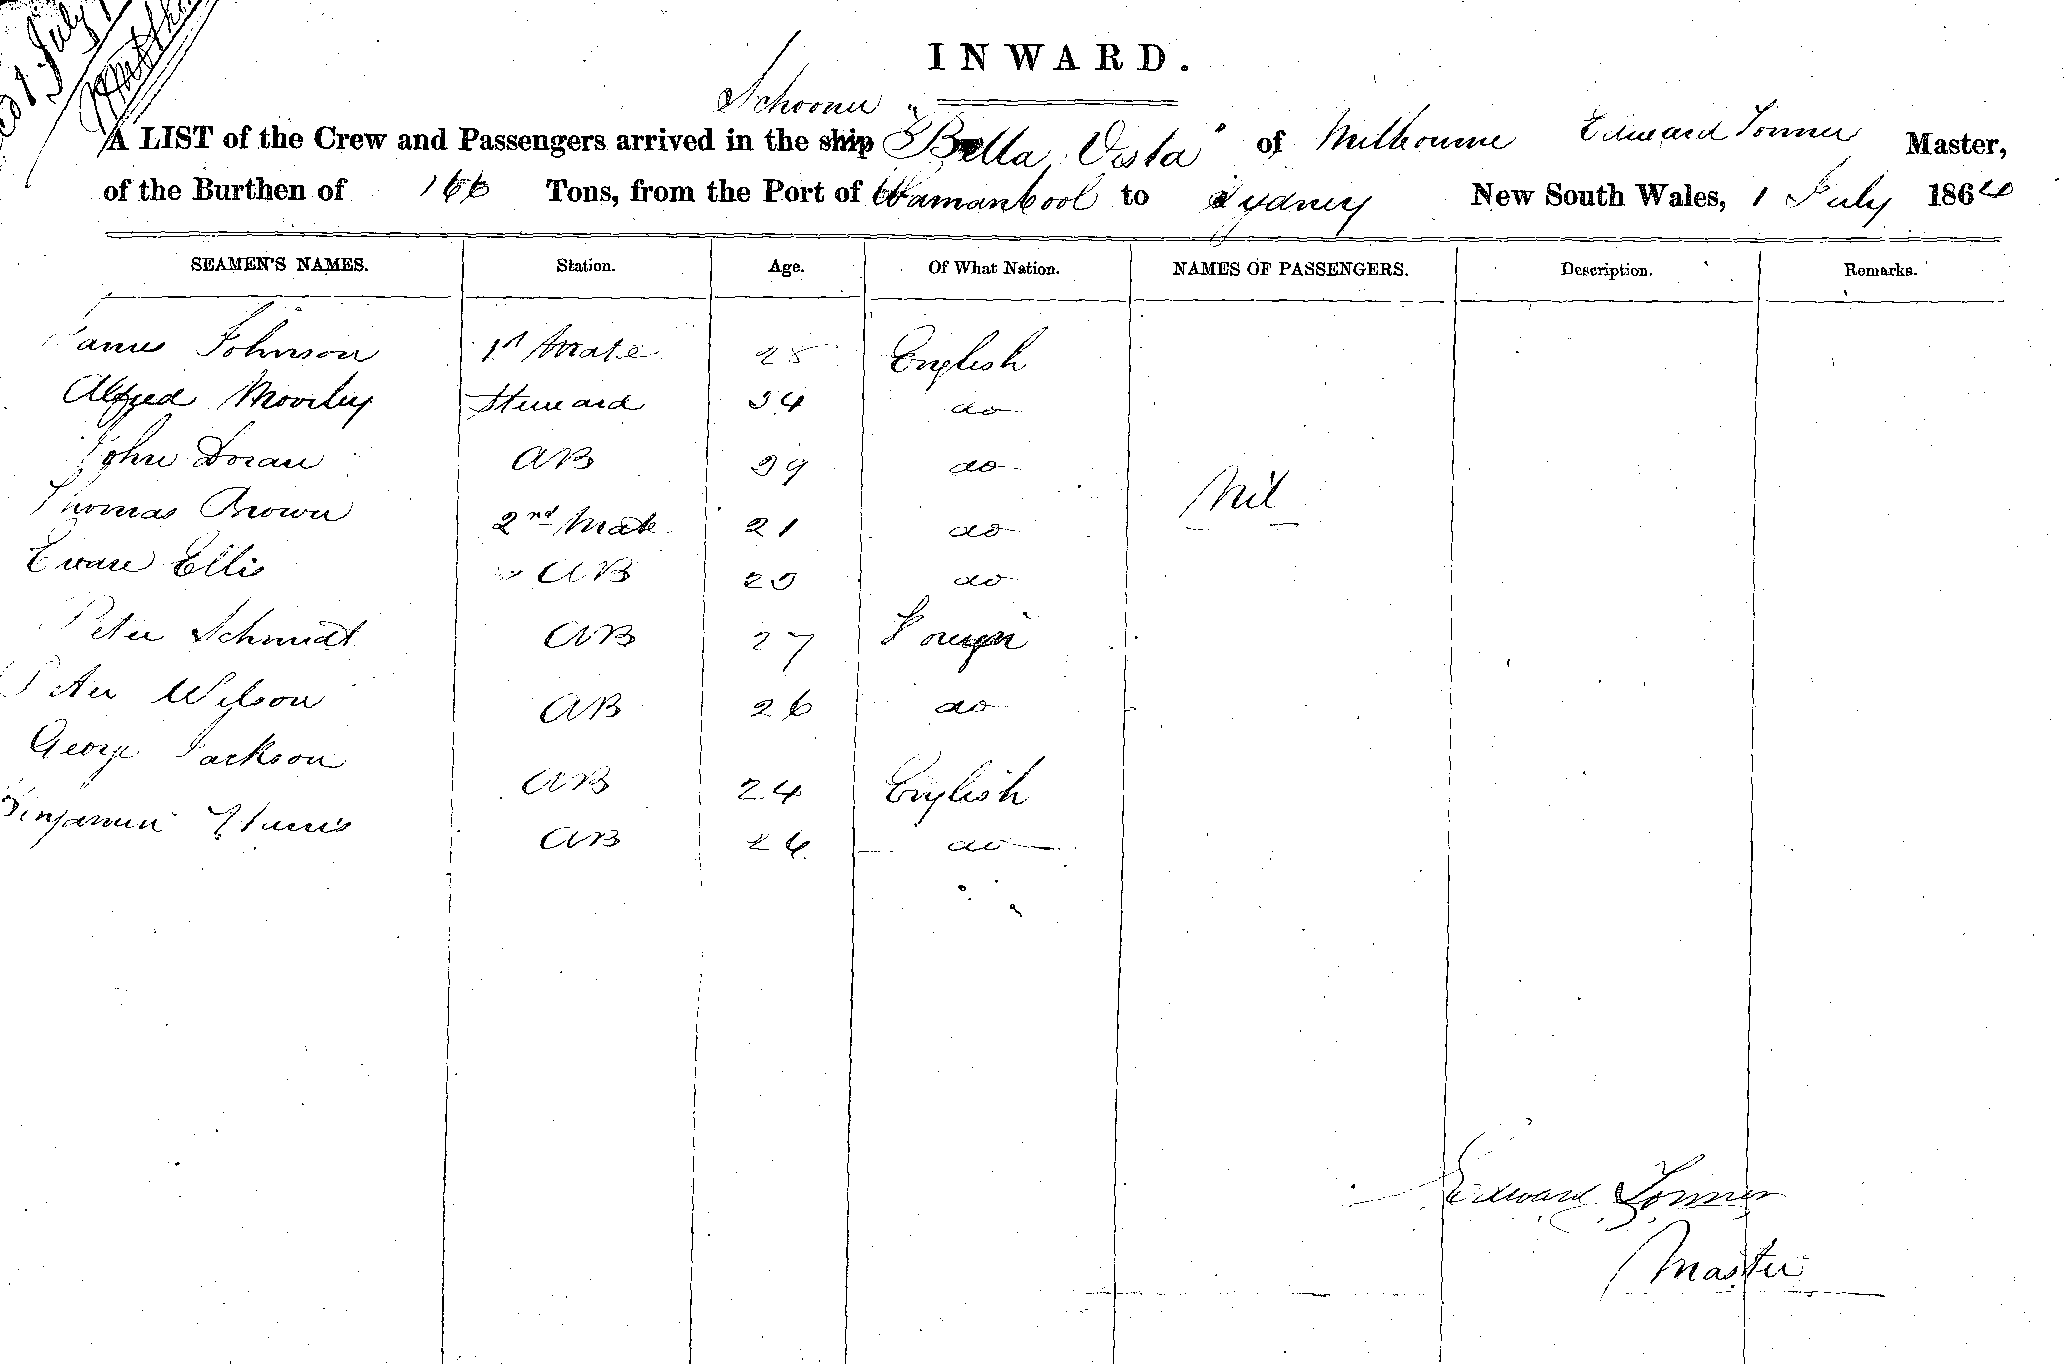 1 July
INWARD.
Schooner
A LIST of the Crew and Passengers arrived in the ship "Bella Vista" of Melbourne Edward Tonner Master,
of the Burthen of 166 Tons, from the Port of Warnanbool to Sydney New South Wales, 1 July 1864
SEAMEN'S NAMES. Station. Age. Of What Nation. NAMES OF PASSENGERS. Description. Remarks.
James Johnson 1st Mate 25 English
Alfred 34 do
Steward
John Doran AB 39 do
Nil
Thomas Brown 2nd Mate 21 do
Ellis AB do
Peter Schmidt AB 27 Foreign
Peter Wilson AB 26 do
George Jackson AB 24 English
Benjamin Harris AB do
Edward Tonner
Master